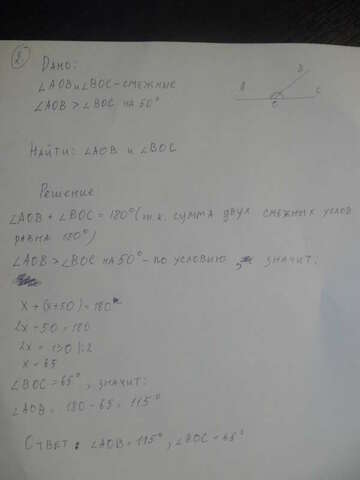 2.
Дано:
∠AOB и ∠BOC - смежные
∠AOB > ∠BOC на 50°
B
A
O
C
Найти: ∠AOB и ∠BOC
Решение
∠AOB + ∠BOC = 180° (т.к. сумма двух смежных углов
равна 180°)
∠AOB > ∠BOC на 50° - по условию, значит:
x + (x+50) = 180°
2x - 50 = 180
2x = 130 |:2
x = 65
∠BOC = 65°, значит:
∠AOB = 180 - 65 = 115°
Ответ: ∠AOB = 115°, ∠BOC = 65°